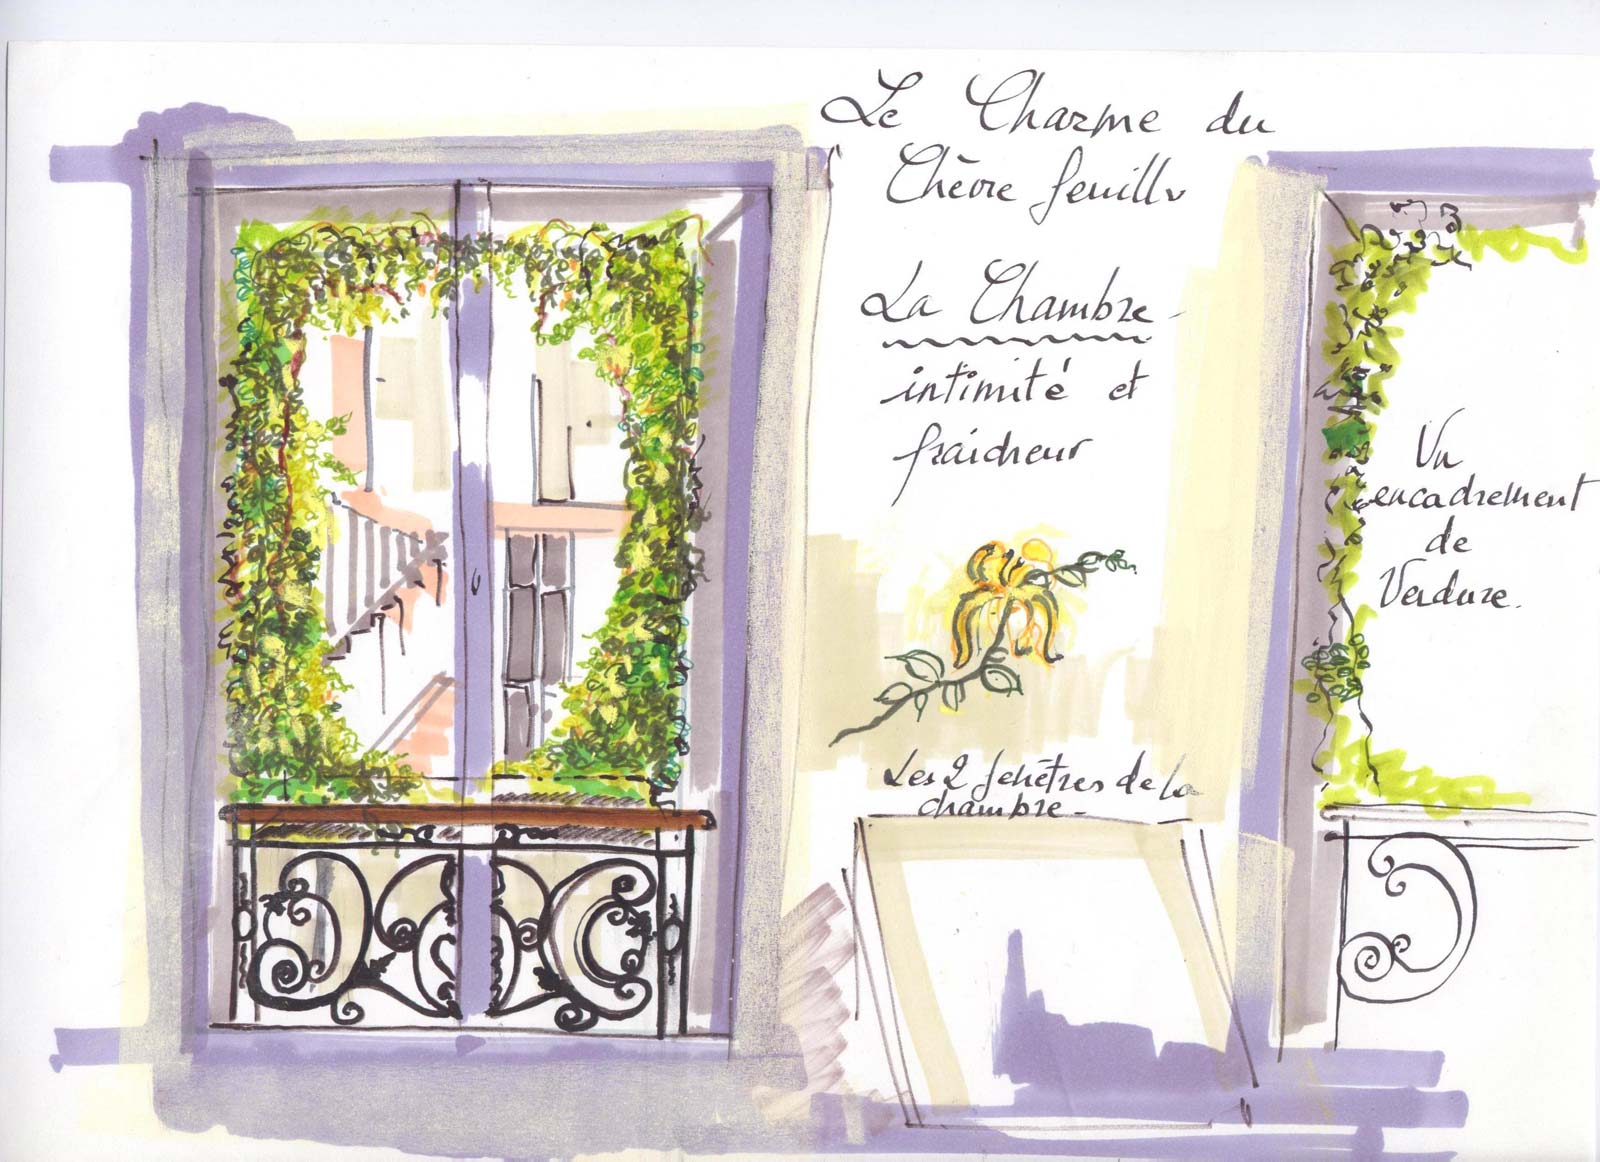 Le Charme du
Chèvre feuille
La Chambre -
intimité et
fraicheur
Un
encadrement
de
Verdure.
Les 2 fenêtres de la
chambre -